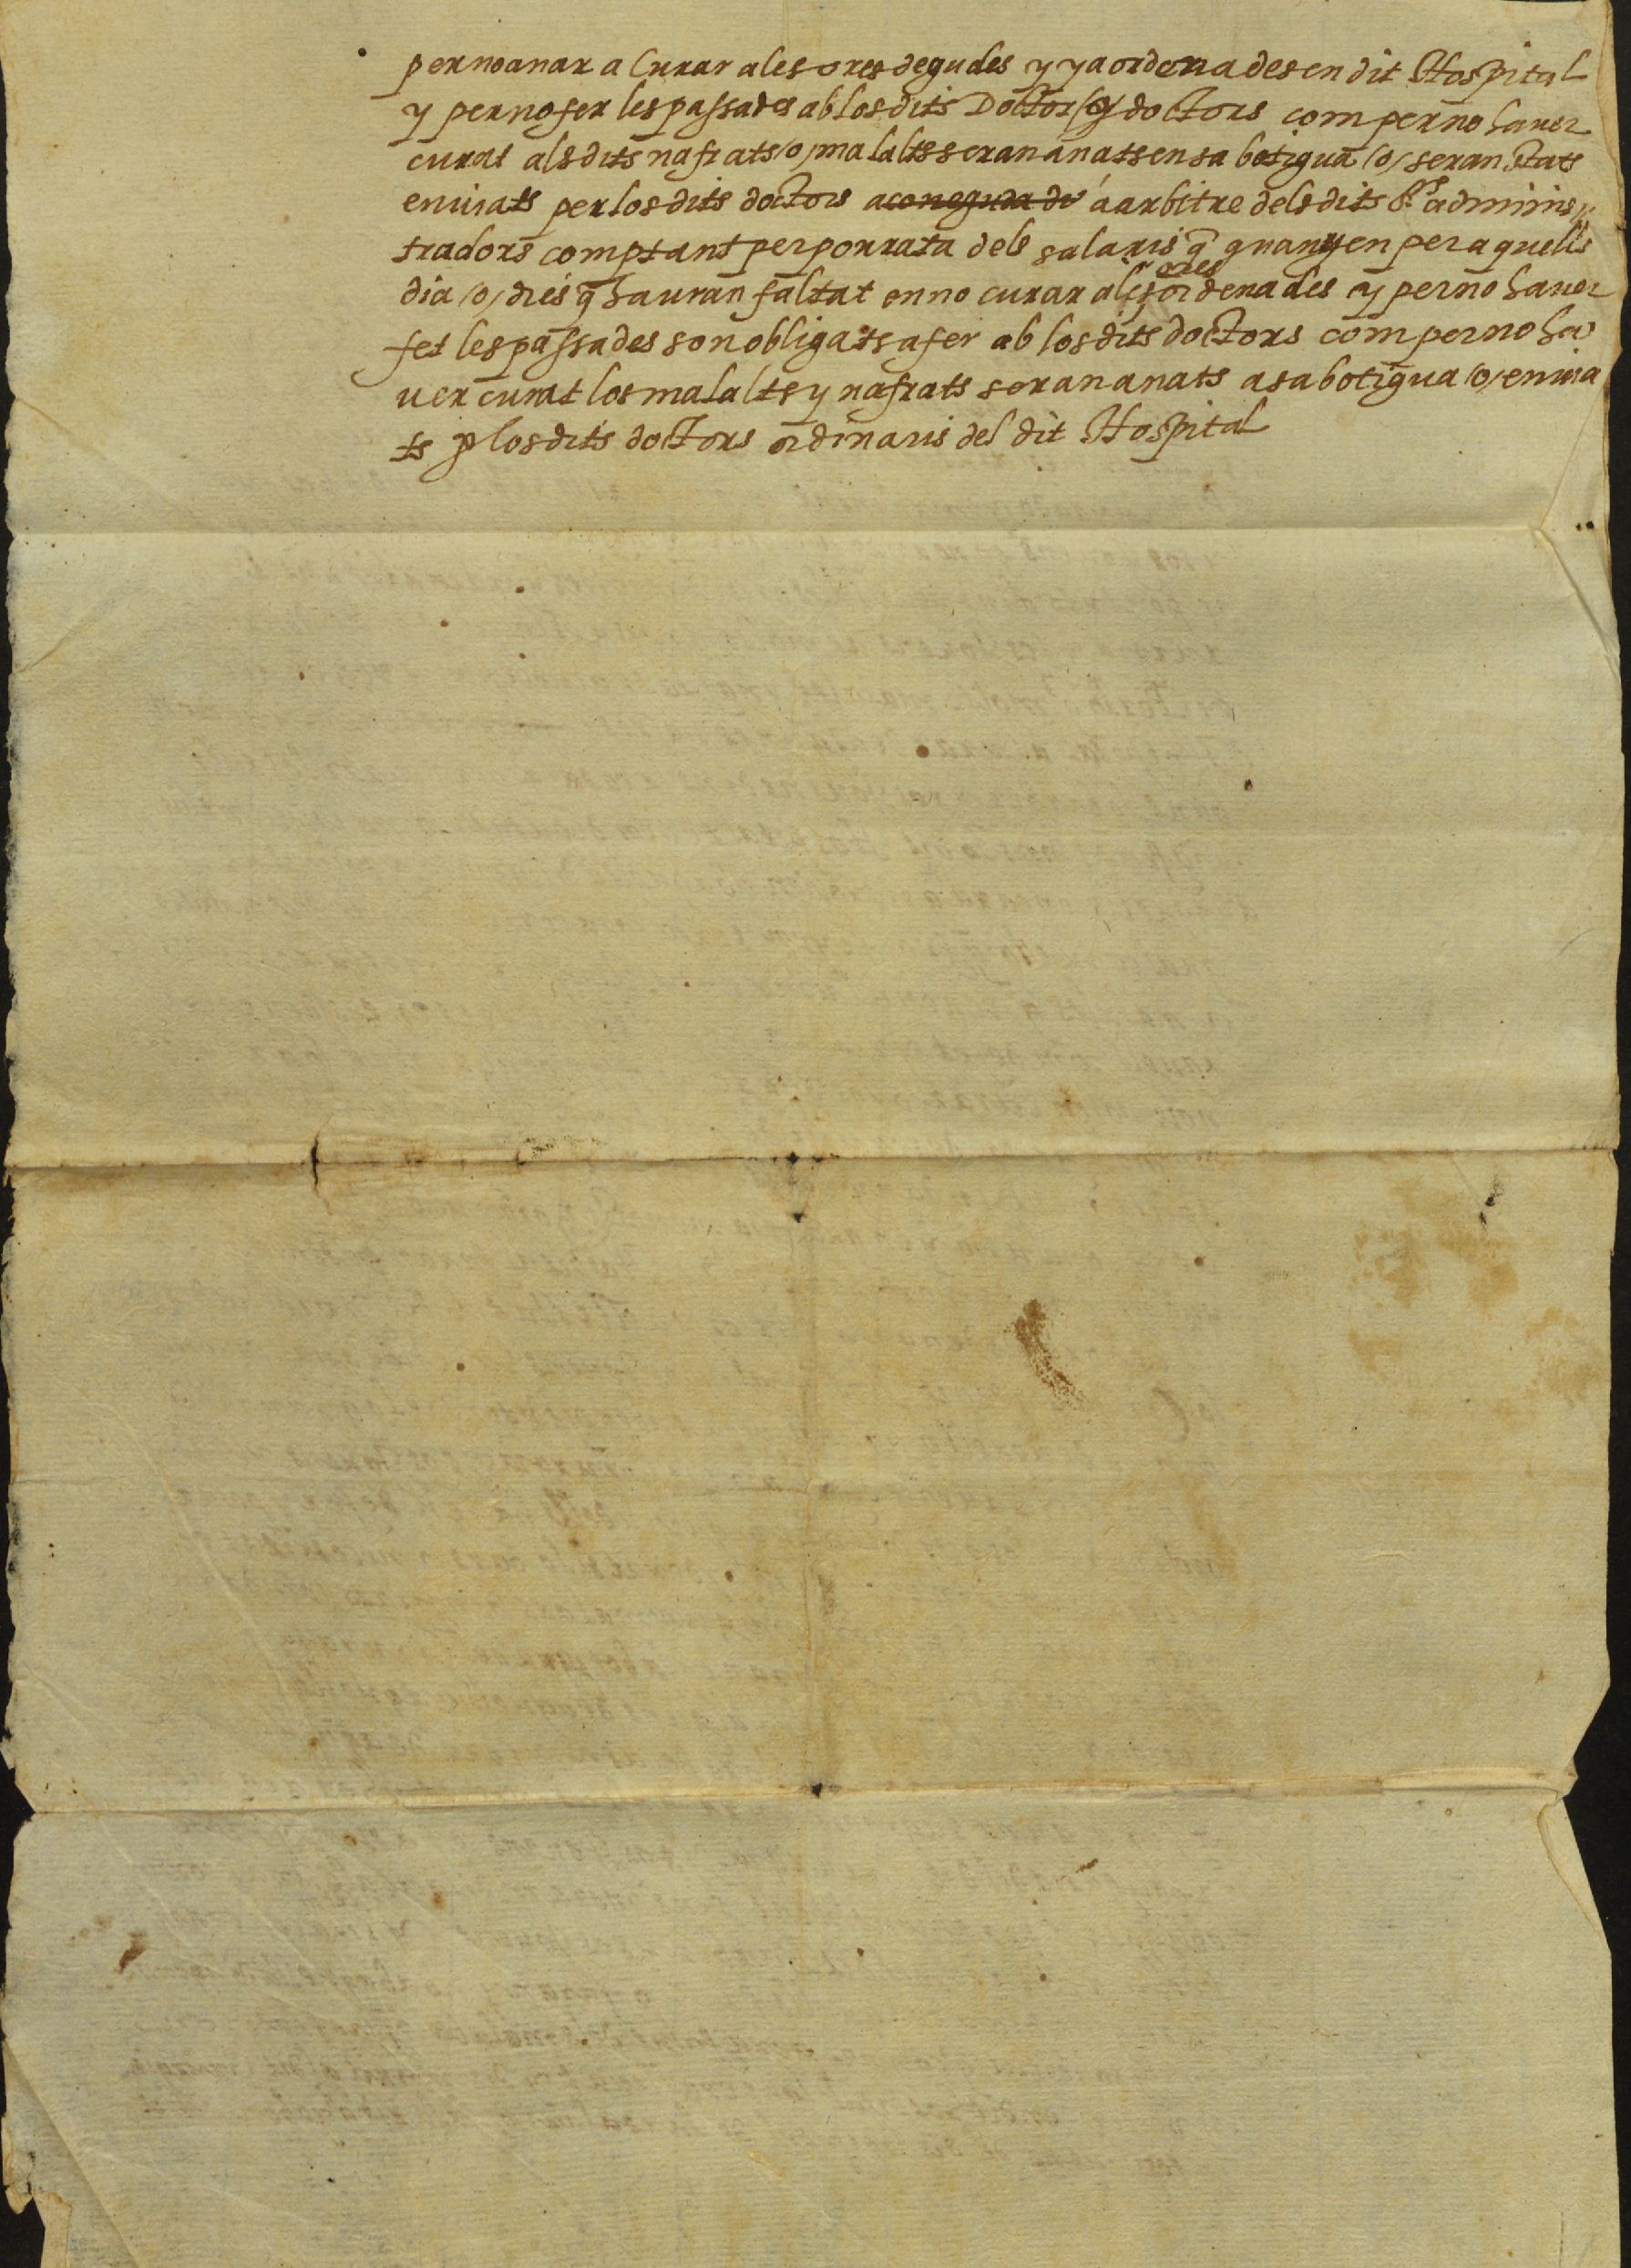 per no anar a Curar a les ores degudes y ya ordenades en dit Hospital
y per no fer les passades ab los dits Doctor (o) doctors com per no haver
curat als dits nafrats /o/ malalts seran anats en sa botigua /o/ seran stats
enviats per los dits doctors a coneguda de á arbitre dels dits Srs adminis
tradors comptant per porrata dels salaris q̃ guanyen per aquells
dia /o/ dies q̃ hauran faltat en no curar a les ores ordenades y per no haver
fet les passades son obligats a fer ab los dits doctors com per no ha
ver curat los malalts y nafrats seran anats a sa botigua /o/ envia
ts p los dits doctors ordinaris del dit Hospital